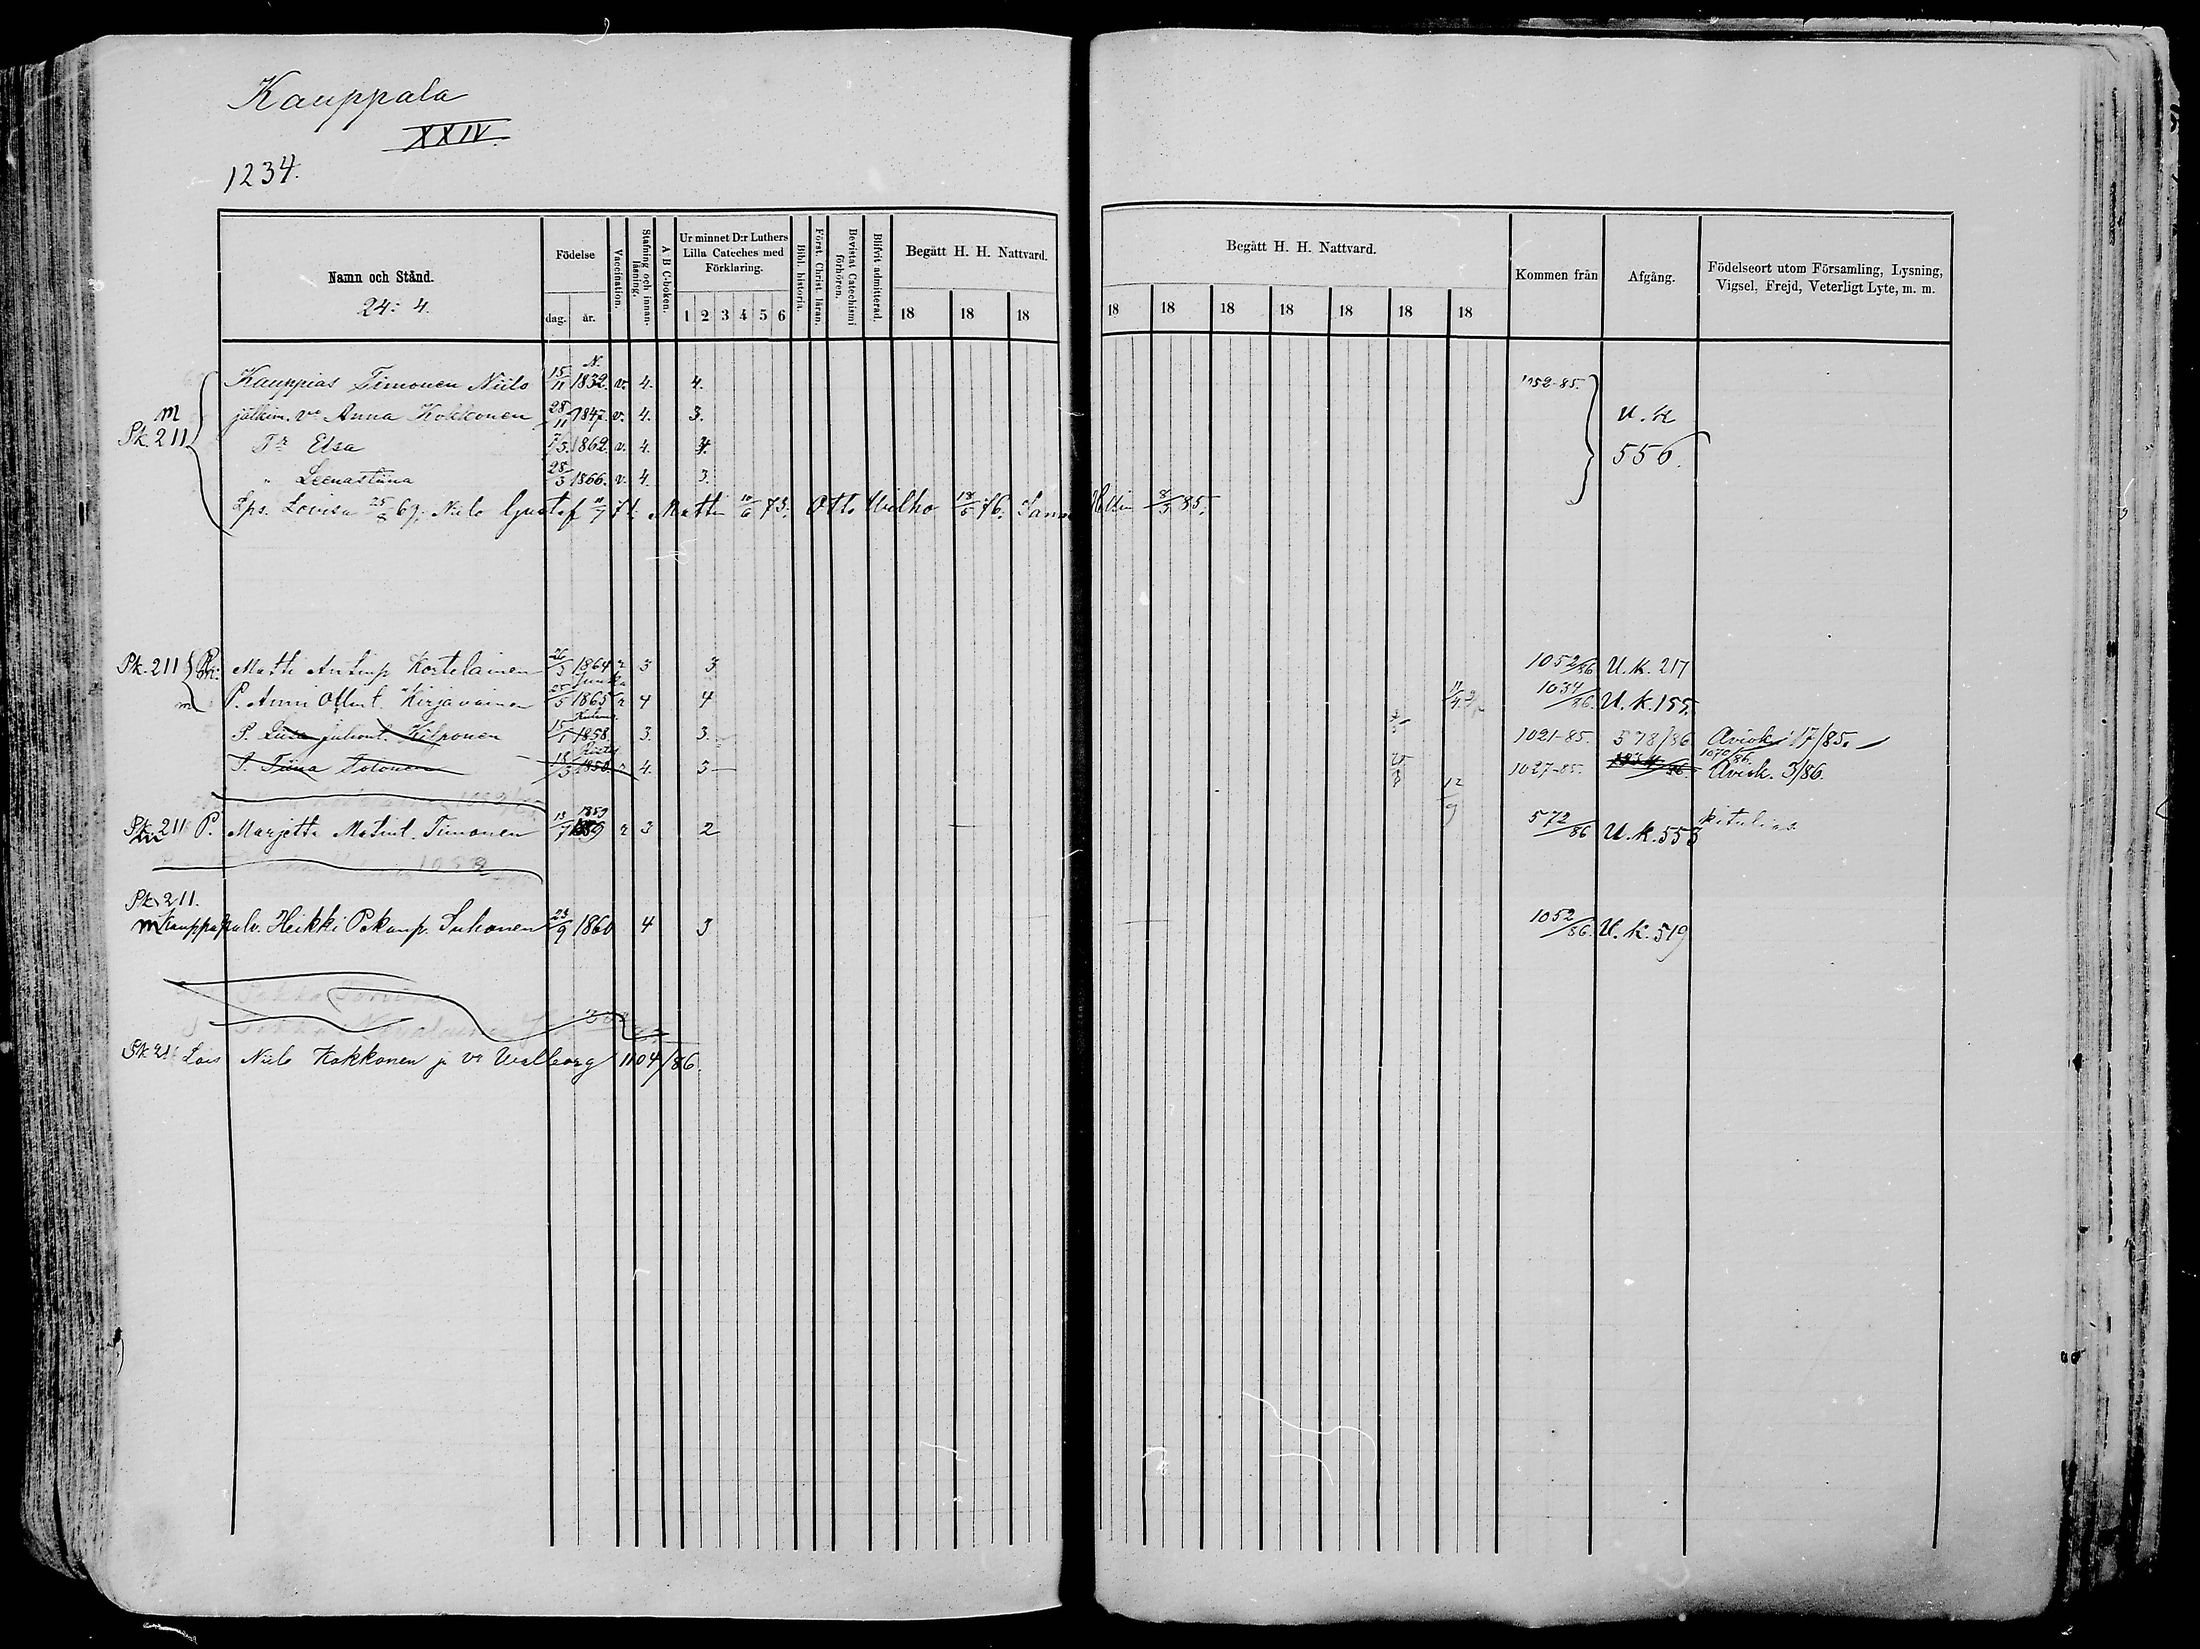 Kauppala
XXIV.
1234.
Namn och Stånd.
24: 4.
Födelse
dag. år.
Vaccination.
Stafning och innan-läsning.
A B C-boken.
Ur minnet D:r Luthers Lilla Cateches med Förklaring.
1 2 3 4 5 6
Bibl. historia.
Först. Christ. läran.
Bevistat Catechismi förhören.
Blifvit admitterad.
Begått H. H. Nattvard.
18 18 18
Begått H. H. Nattvard.
18 18 18 18 18 18 18
Kommen från
Afgång.
Födelseort utom Församling, Lysning, Vigsel, Frejd, Veterligt Lyte, m. m.
N.
Kauppias Timonen Niilo 15/11 1832. v. 4. 4. 1152-85.
m
Pk. 211
jälkim. vo Anna Kokkonen 28/11 1847. v. 4. 3. U. k
Tr Elsa 1862. v. 4. 4. 556.
" Leenastiina 28/3 1866. v. 4. 3.
Lps. Lovisa 25/8 69; Niilo Gustaf 71: Matti 10/6 73; Otto Wilho 18/6 76. 8/3 85.
Pk. 211 Matti Antinp. Kortelainen 26/3 1864 r 3 3 1052/86 U. k. 217
m P. Anni Ollint. Kirjavainen 25/5 1865 r 4 4 1034/86. U. k. 155.
P. Liisa juhont. Kilponen 15/1 1858. 3. 3. 1021-85. 578/86 Aviok. 17/85.
P. Tiina Tolonen 18/3 1850 4. 3 1027-85. 1070/86. Aviok. 3/86.
Pk. 211 P. Marjetta Matint. Timonen 13/7 1859 r 3 2 572/86 U. k. 553 kitulias
Pk. 211.
m Kauppapalv. Heikki Pekanp. Suhonen 23/9 1860 4 3 1052/86. U. k. 519
Pk 21 Lois Niilo Kokkonen ja vo Walborg 1104/86.